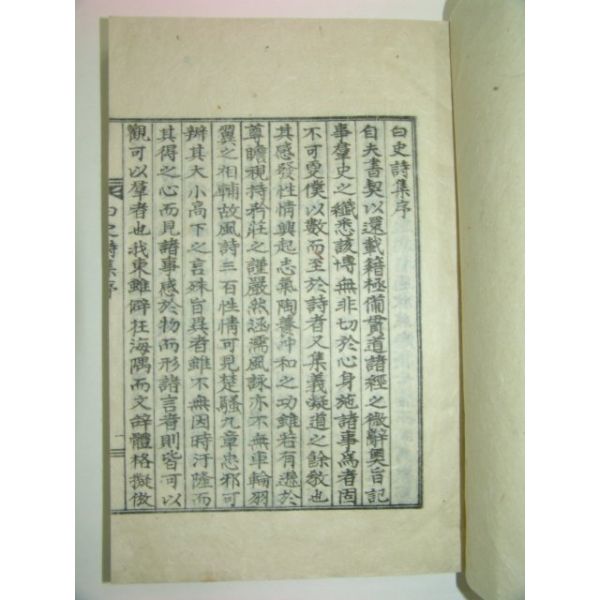 白史詩集序
自夫書契以還載籍極備貫道諸經之微辭奧旨記
事羣史之纖悉該博無非切於心身施諸事爲者固
不可更僕以數而至於詩者又集義凝道之餘教也
其感發性情興起志氣陶養沖和之功雖若有遜於
尊瞻視持矜莊之謹嚴然涵濡風詠亦不無車輪羽
翼之相輔故風詩三百性情可見楚騷九章忠邪可
辨其大小高下之言殊旨異者雖不無因時汙隆而
其得之心而見諸事感於物而形諸言者則皆可以
觀可以羣者也我東雖僻在海隅而文辭體格擬倣
白史詩集序
一